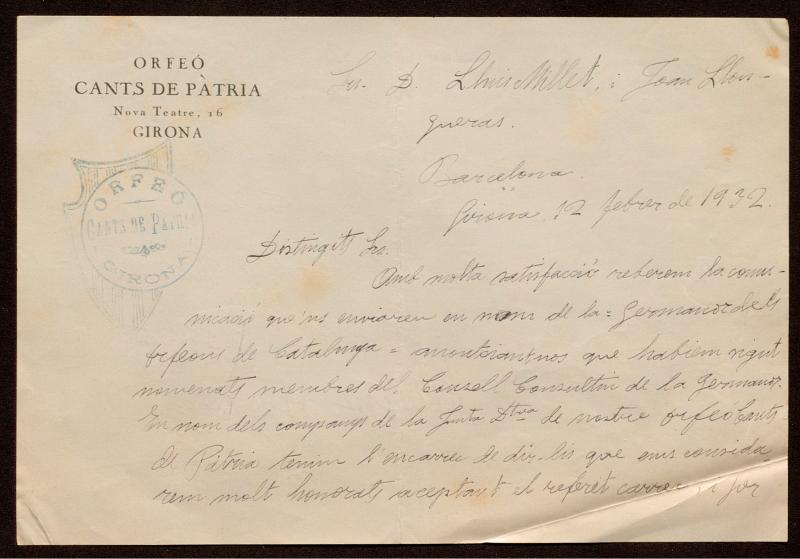 ORFEÓ
CANTS DE PÀTRIA
Nova Teatre, 16
GIRONA
ORFEÓ
CANTS DE PÀTRIA
GIRONA
Srs. D. Lluis Millet, i Joan Llon-
gueras.
Barcelona.
Girona, 12 febrer de 1932.
Distingits Srs.
Amb molta satisfacció reberem la comu-
nicació que'ns enviaren en nom de la = Germanor dels
orfeons de Catalunya = anontciantnos que habiem sigut
nomenats membres del Consell Consultiu de la Germanor.
En nom dels companys de la Junta Dtva de nostre orfeó Cants
de Pàtria tenim l'encarrec de dir-lis que ens consida
rem molt honorats aceptant el referet carrec, i per